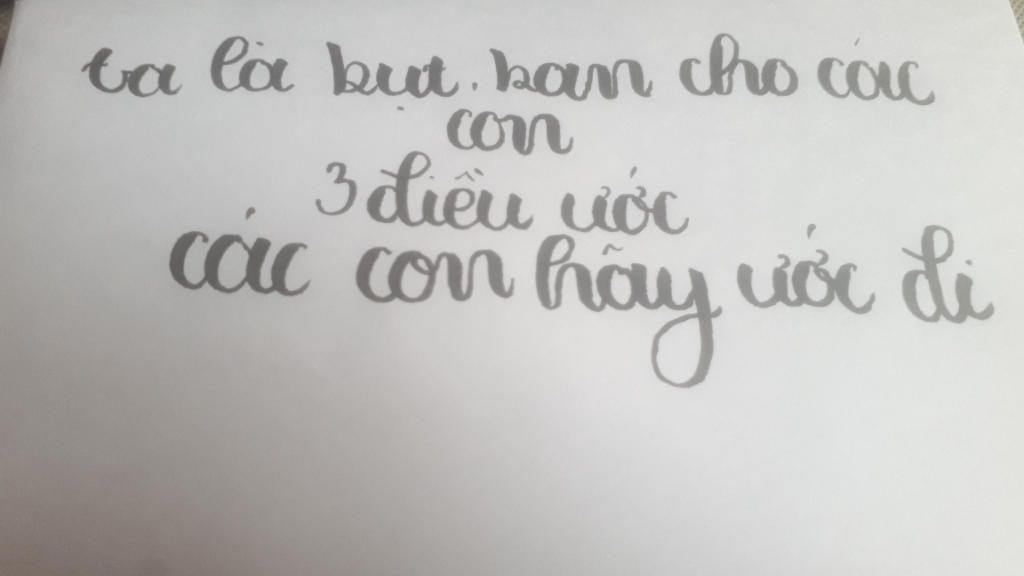 ta là bụt. ban cho các
con
3 điều ước
các con hãy ước đi